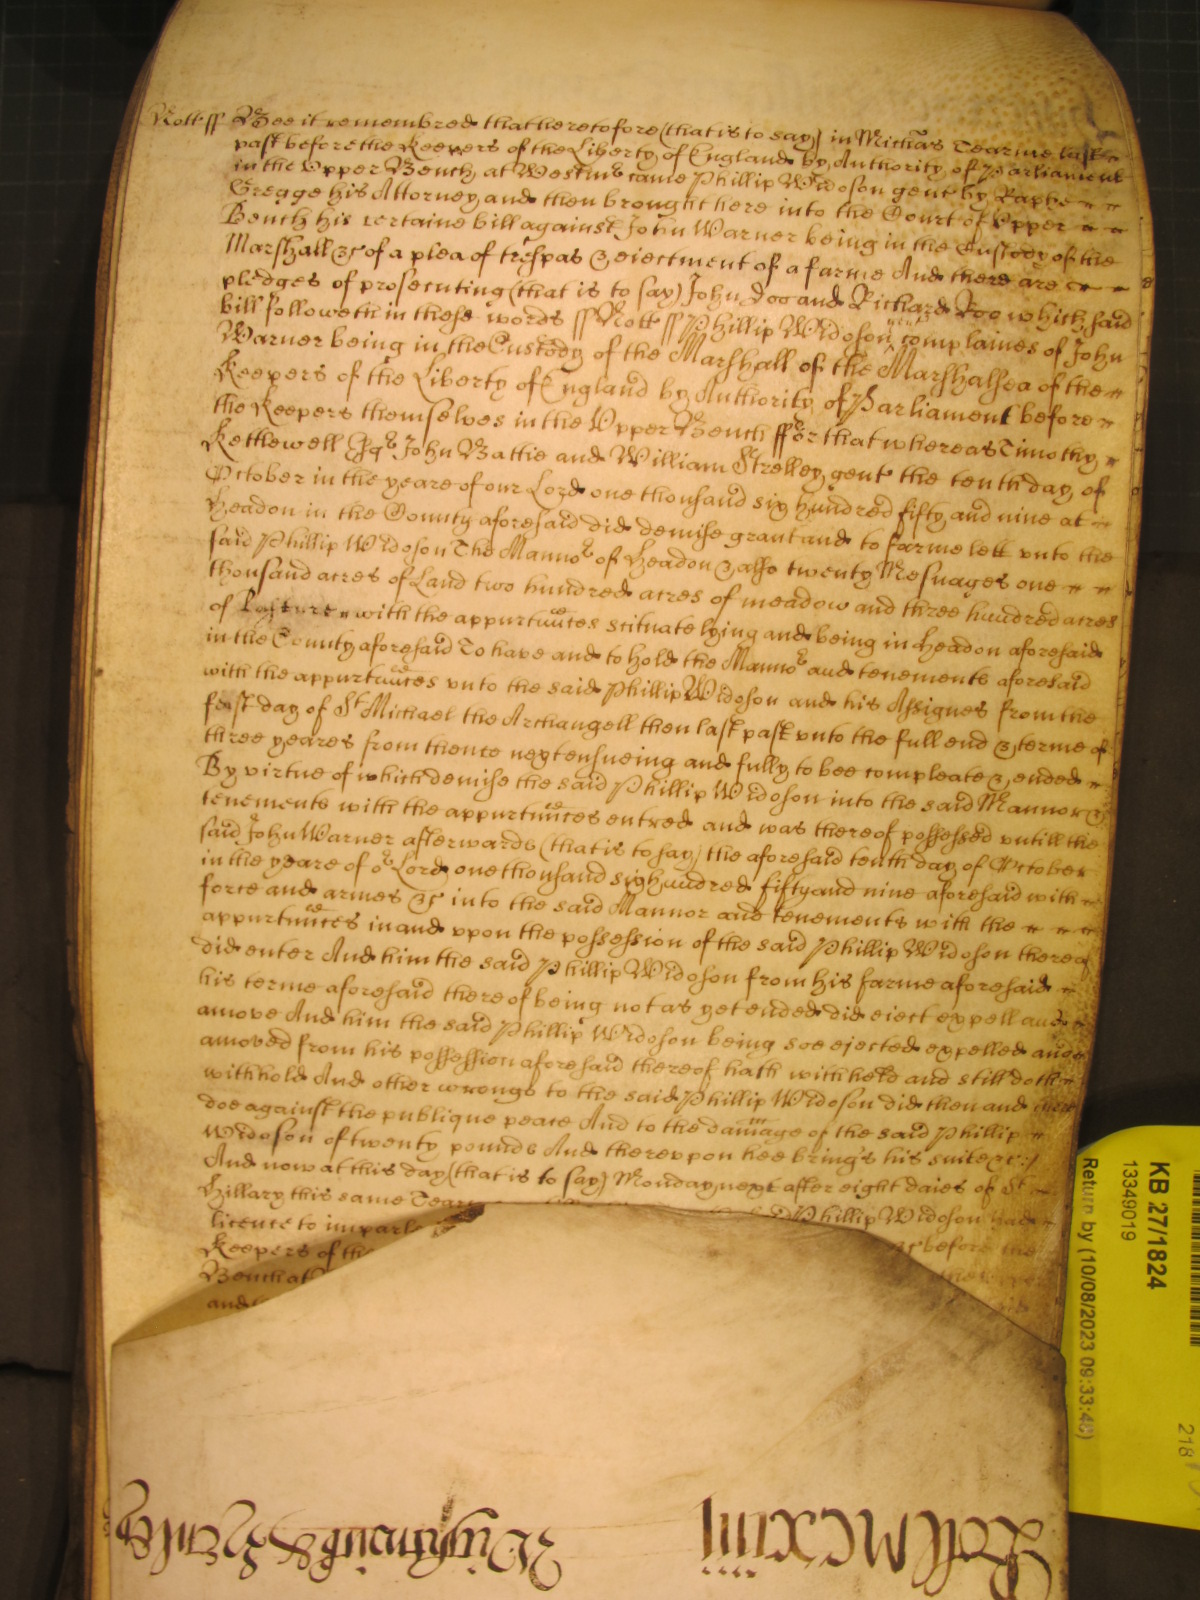 Nott ss Bee it remembred that heretofore (that is to say) in Mich'as Tearme last
past before the Keepers of the Liberty of England by Authority of Parliament
in the Upper Bench at Westm' came Phillip Widoson gent by
Gregge his Attorney and then brought here into the Court of Upper
Bench his certaine bill against John Warner being in the Custody of the
Marshall &c of a plea of trespas & eiectment of a farme And there are
pledges of prosecuting (that is to say) John Doo and Richard Roo which said
bill followeth in these words ss Nott ss Phillip Widoson gent complaines of John
Warner being in the Custody of the Marshall of the Marshalsea of the
Keepers of the Liberty of England by Authority of Parliament before
the Keepers themselves in the Upper Bench ffor that whereas Timothy
Kettlewell Esqr John Battie and William Strelley gent the tenth day of
October in the yeare of our Lord one thousand six hundred fifty and nine at
Headon in the County aforesaid did demise grant and to farme lett unto the
said Phillip Widoson The Mannor of Headon & also twenty Mesuages one
thousand acres of Land two hundred acres of meadow and three hundred acres
of Pasture with the appurtunces scituate lying and being in Headon aforesaid
in the County aforesaid To have and to hold the Mannor and tenements aforesaid
with the appurtunces unto the said Phillip Widoson and his Assignes from the
feast day of St Michael the Archangell then last past unto the full end & terme of
three yeares from thence next ensueing and fully to bee compleate & ended
By virtue of which demise the said Phillip Widoson into the said Mannor &
tenements with the appurtunces entred and was thereof possessed untill the
said John Warner afterwards (that is to say) the aforesaid tenth day of October
in the yeare of or Lord one thousand six hundred fifty and nine aforesaid with
force and armes &c into the said Mannor and tenements with the
appurtunces in and upon the possession of the said Phillip Widoson thereof
did enter And him the said Phillip Widoson from his farme aforesaid
his terme aforesaid thereof being not as yet ended did eiect expell and
amove And him the said Phillip Widoson being soe ejected expelled and
amoved from his possession aforesaid thereof hath withheld and still doth
withhold And other wrongs to the said Phillip Widoson did then and there
doe against the publique peace And to the damage of the said Phillip
Widoson of twenty pounds And thereupon hee brings his suite &c
And now at this day (that is to say) Monday next after eight daies of St
Hillary this same Tearme Phillip Widoson had
licence to imparle &c before the
Keepers of the
Bench at
and
Roll MCXIIII
KB 27/1824
13349019
Return by (10/08/2023 09:33:48)
218